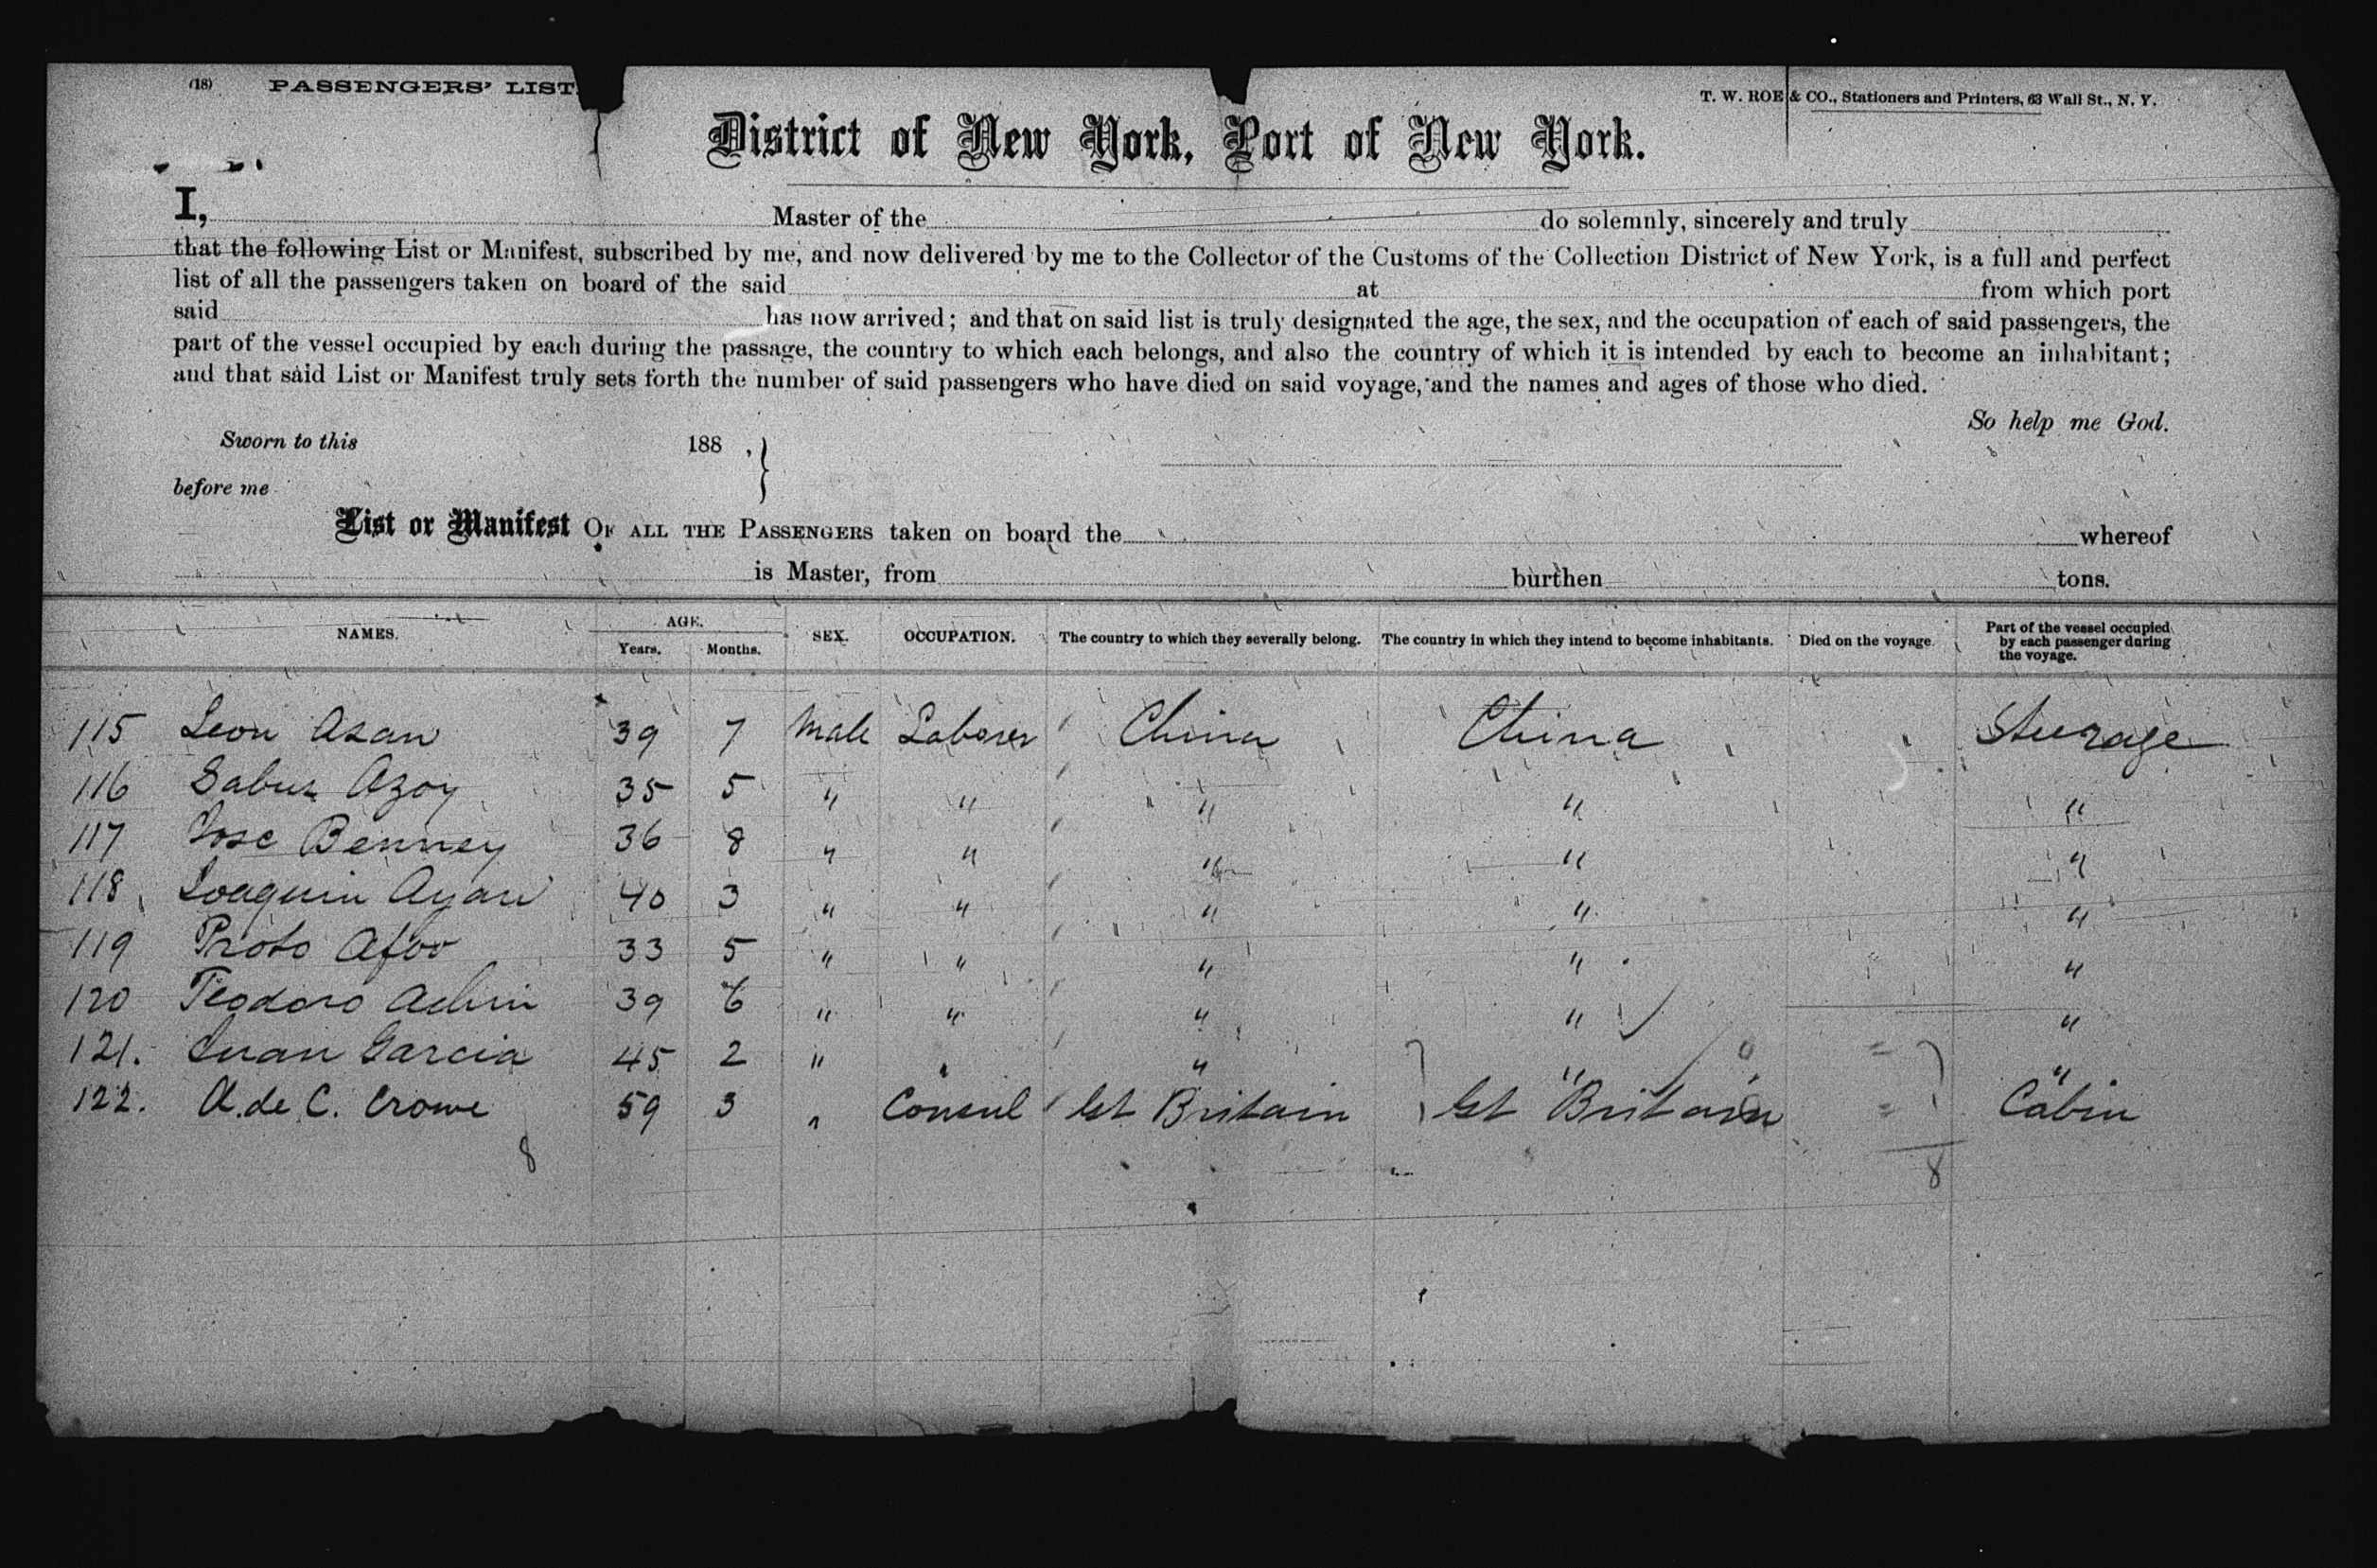 (18) PASSENGERS' LIST.
T. W. ROE & CO., Stationers and Printers, 63 Wall St., N. Y.
District of New York, Port of New York.
I, Master of the do solemnly, sincerely and truly
that the following List or Manifest, subscribed by me, and now delivered by me to the Collector of the Customs of the Collection District of New York, is a full and perfect
list of all the passengers taken on board of the said at from which port
said has now arrived; and that on said list is truly designated the age, the sex, and the occupation of each of said passengers, the
part of the vessel occupied by each during the passage, the country to which each belongs, and also the country of which it is intended by each to become an inhabitant;
and that said List or Manifest truly sets forth the number of said passengers who have died on said voyage, and the names and ages of those who died.
So help me God.
Sworn to this 188 , }
before me
List or Manifest OF ALL THE PASSENGERS taken on board the whereof
is Master, from burthen tons.
NAMES. AGE. Years. Months. SEX. OCCUPATION. The country to which they severally belong. The country in which they intend to become inhabitants. Died on the voyage. Part of the vessel occupied by each passenger during the voyage.
115 Leon Asan 39 7 Male Laborer China China Steerage
116 Azoy 35 5 " " " " "
117 Jose Benney 36 8 " " " " "
118 Joaquin Ayan 40 3 " " " " "
119 Proto Afoo 33 5 " " " " "
120 Teodoro Achin 39 6 " " " " "
121. Juan Garcia 45 2 " " " " "
122. A. de C. Crowe 59 3 " Consul Gt Britain Gt Britain Cabin
8 8